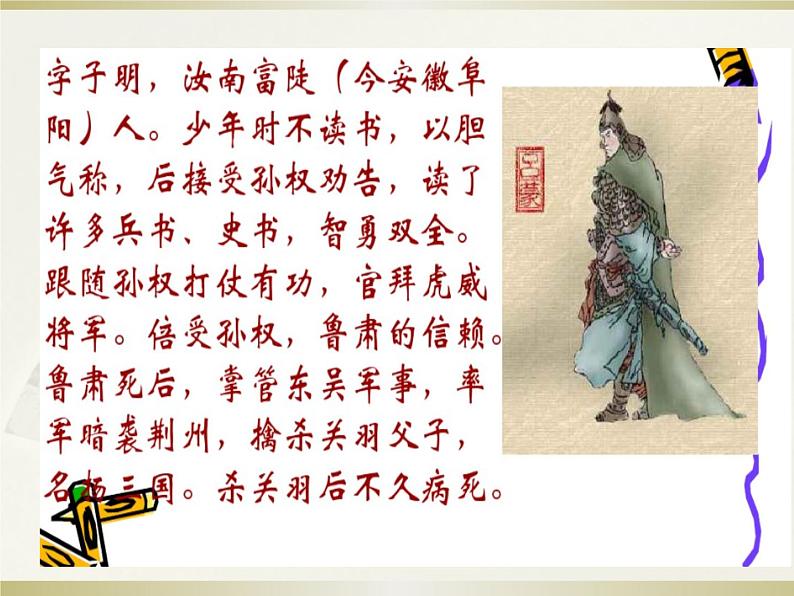 字子明，汝南富陡（今安徽阜
阳）人。少年时不读书，以胆
气称，后接受孙权劝告，读了
许多兵书、史书，智勇双全。
跟随孙权打仗有功，官拜虎威
将军。倍受孙权，鲁肃的信赖。
鲁肃死后，掌管东吴军事，率
军暗袭荆州，擒杀关羽父子，
名扬三国。杀关羽后不久病死。
吕蒙